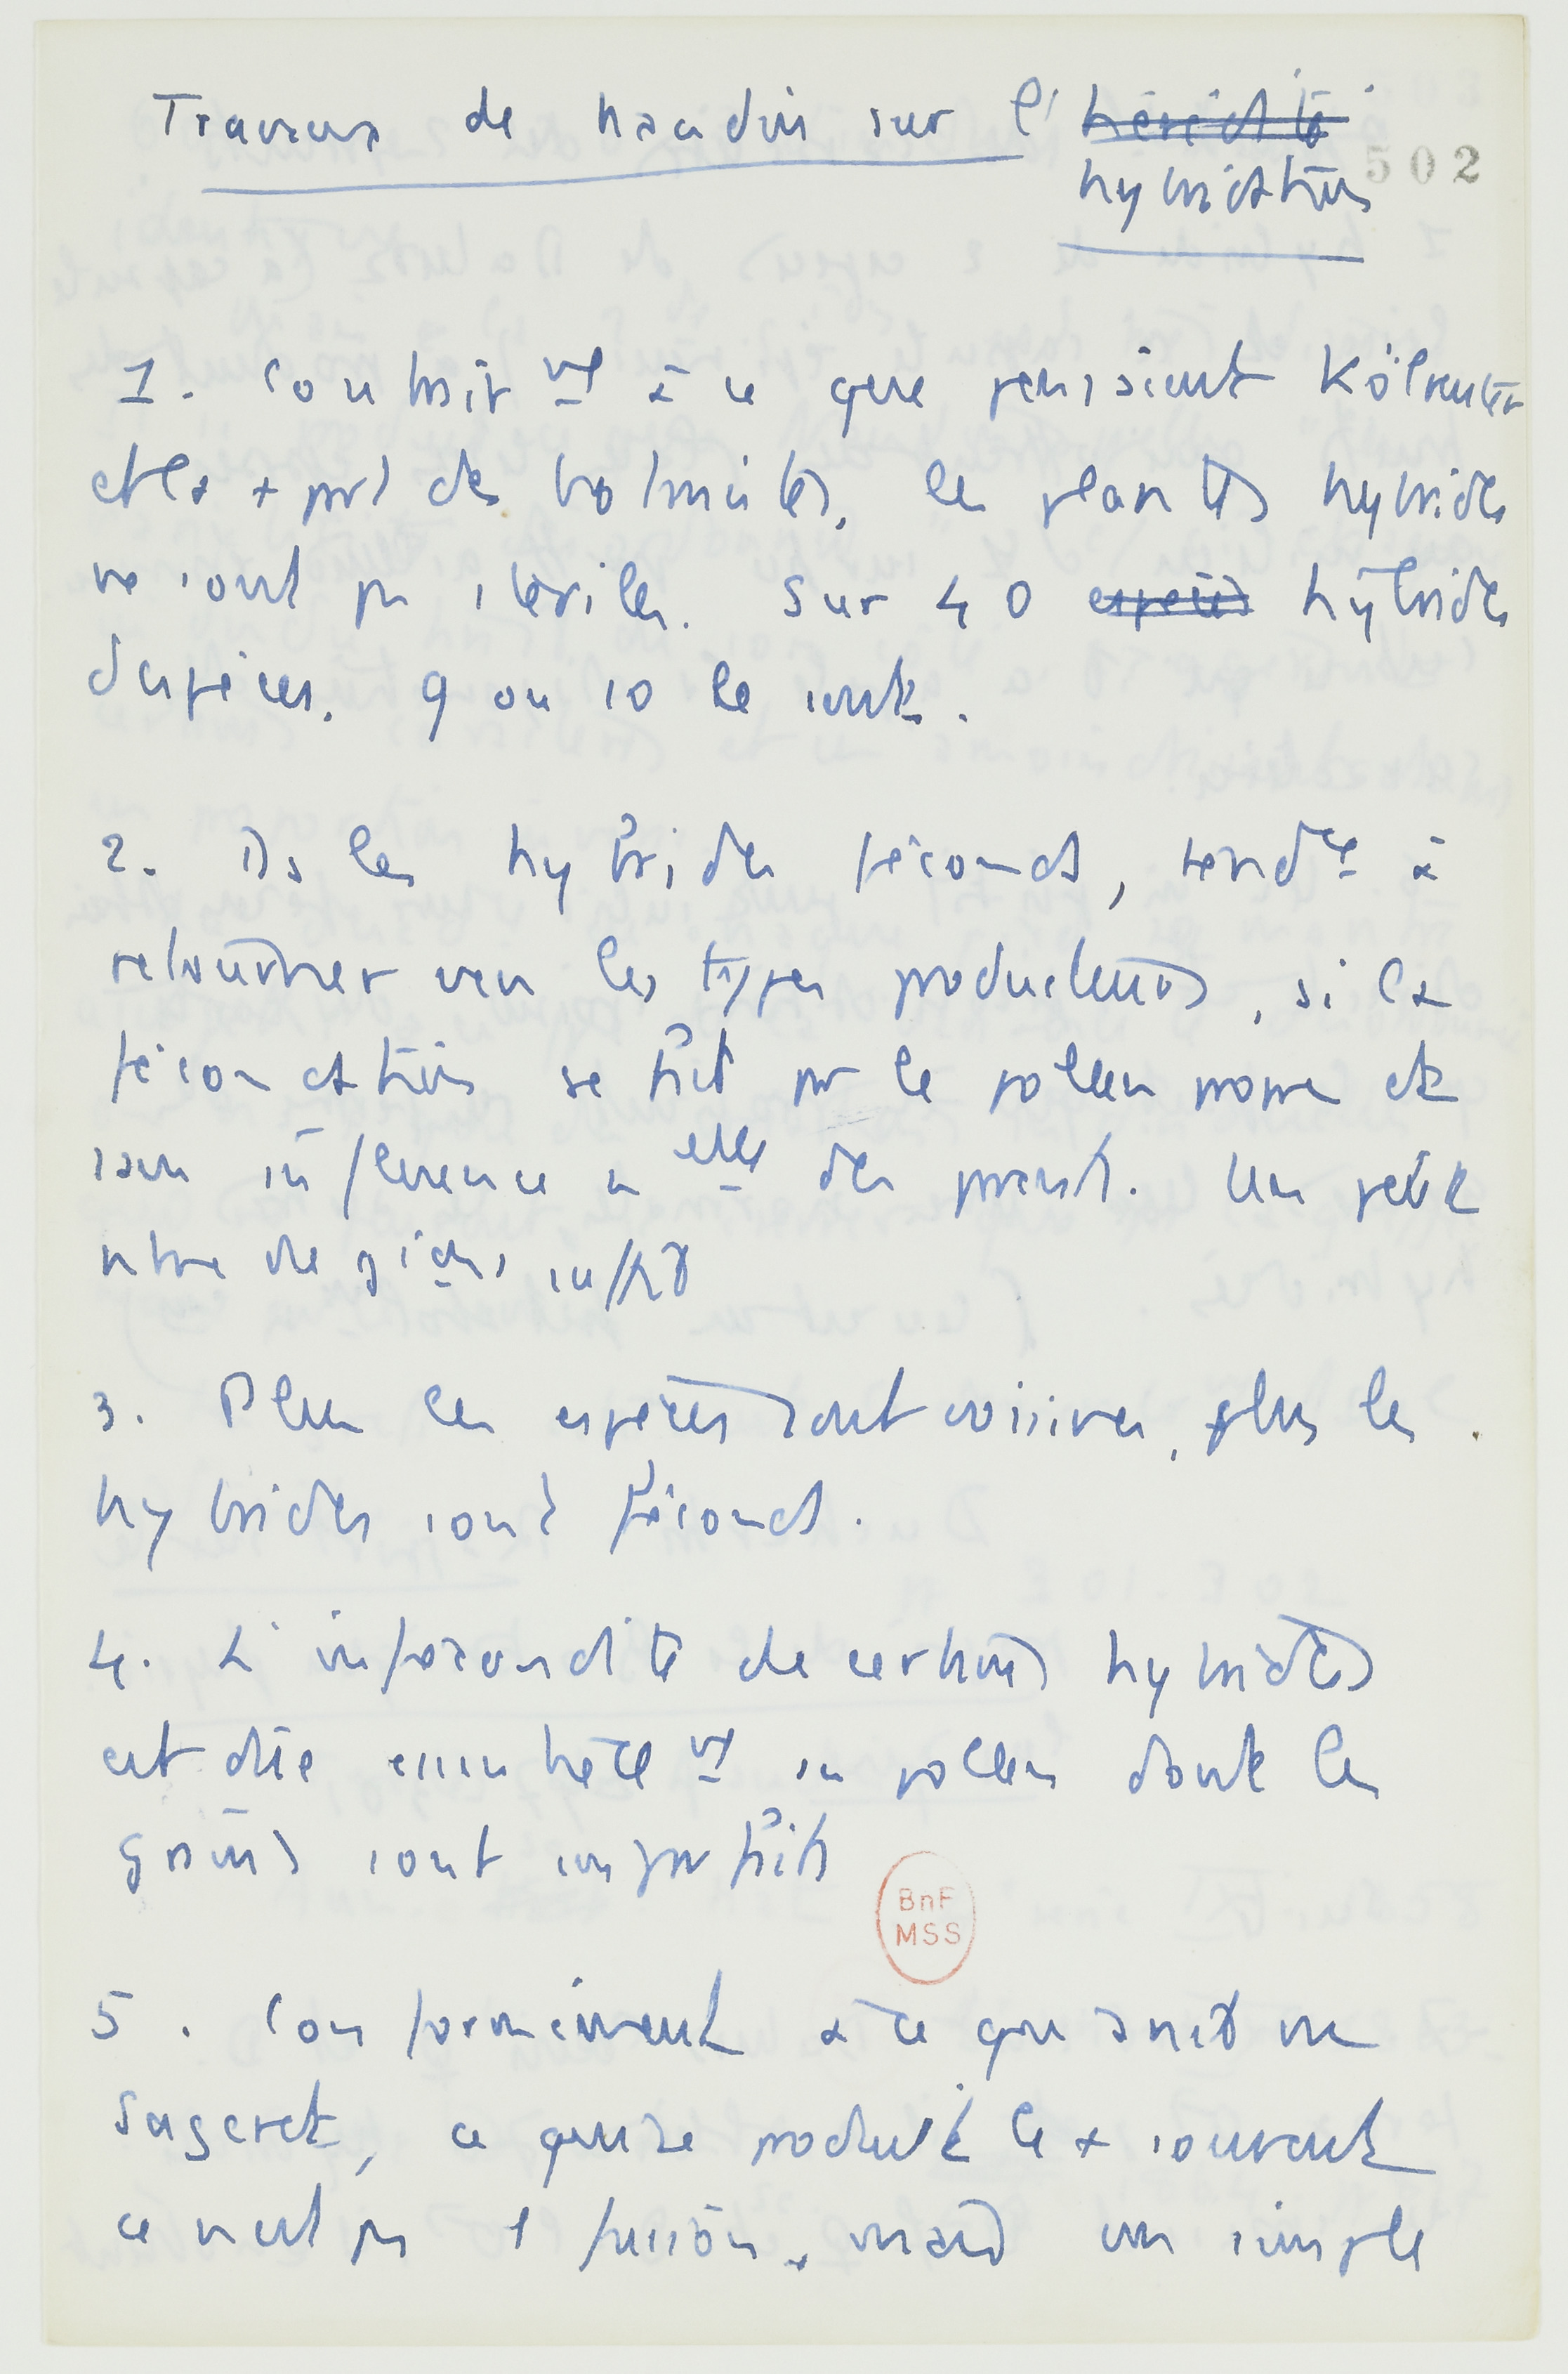 Travaux de Naudin sur l'hérédité
502
hybridation
1. Contrairmt à ce que pensaient Kölreuter
et la + part des botanistes, les plantes hybrides
ne sont pas stériles. Sur 40 espèces hybrides
d'espèces, 9 ou 10 le sont.
2. Ds les hybrides féconds, tendce à
retourner vers les types producteurs, si la
fécondation se fait par le pollen propre et
sans influence nelle des parents. Un petit
nbre de générations suffit
3. Plus les espèces sont voisines, plus les
hybrides sont féconds.
4. L'infécondité de certains hybrides
est due essentiellmt au pollen dont les
grains sont imparfaits
BnF
MSS
5. Conformément à ce que
Sageret, ce qui se produit le + souvent
ce n'est pas 1 fusion, mais un simple